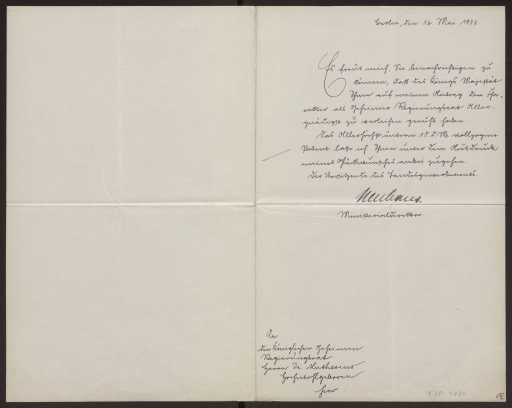 Berlin, den 16 Mai 1913
Es freut mich, Sie benachrichtigen zu
können, daß des Königs Majestät
Ihnen auf meinen Antrag den Cha-
rakter als Geheimer Regierungsrat Aller-
gnädigst zu verleihen geruht haben.
Das Allerhöchst unterm vollzogene
Patent lasse ich Ihnen unter dem Ausdruck
meines Glückwunsches anbei zugehen.
Der Präsident des
Neuhaus.
Ministerialdirektor
An
den Königlichen Geheimen
Regierungsrat
Herrn Dr. Mathesius
Hochwohlgeboren
hier